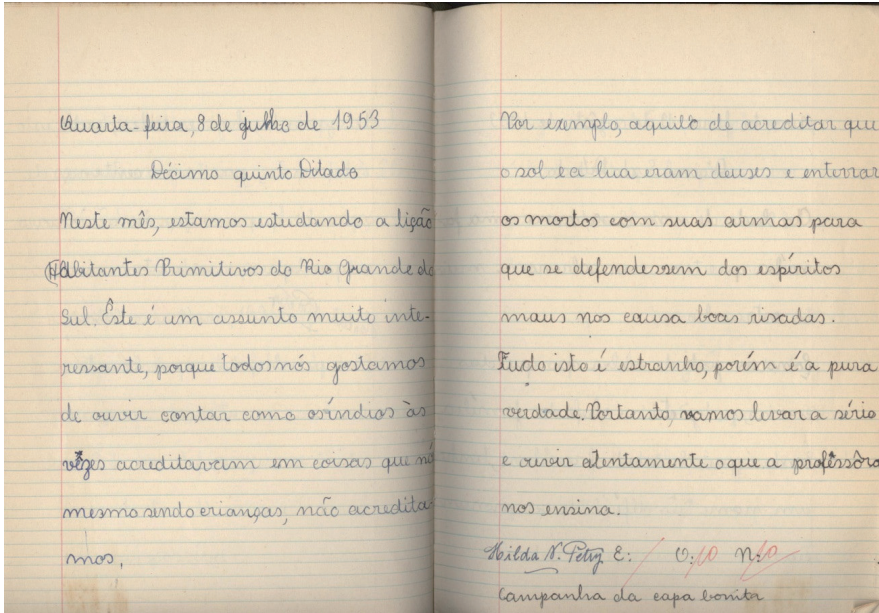 Quarta-feira, 8 de julho de 1953
Décimo quinto Ditado
Neste mês, estamos estudando a lição
Habitantes Primitivos do Rio Grande do
Sul. Êste é um assunto muito inte-
ressante, porque todos nós gostamos
de ouvir contar como os índios às
vêzes acreditavam em coisas que nós
mesmo sendo crianças, não acredita-
mos.
Por exemplo, aquilo de acreditar que
o sol e a lua eram deuses e enterrar
os mortos com suas armas para
que se defendessem dos espíritos
maus nos causa boas risadas.
Tudo isto é estranho, porém é a pura
verdade. Portanto, vamos levar a sério
e ouvir atentamente o que a professôra
nos ensina.
Hilda N. Petry E: O: 10 N: 10
Campanha da capa bonita